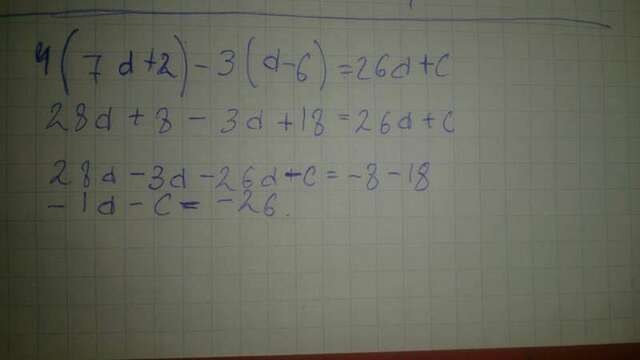 4(7d+2)-3(d-6)=26d+c
28d+8-3d+18=26d+c
28d-3d-26d-c=-8-18
-1d-c=-26.